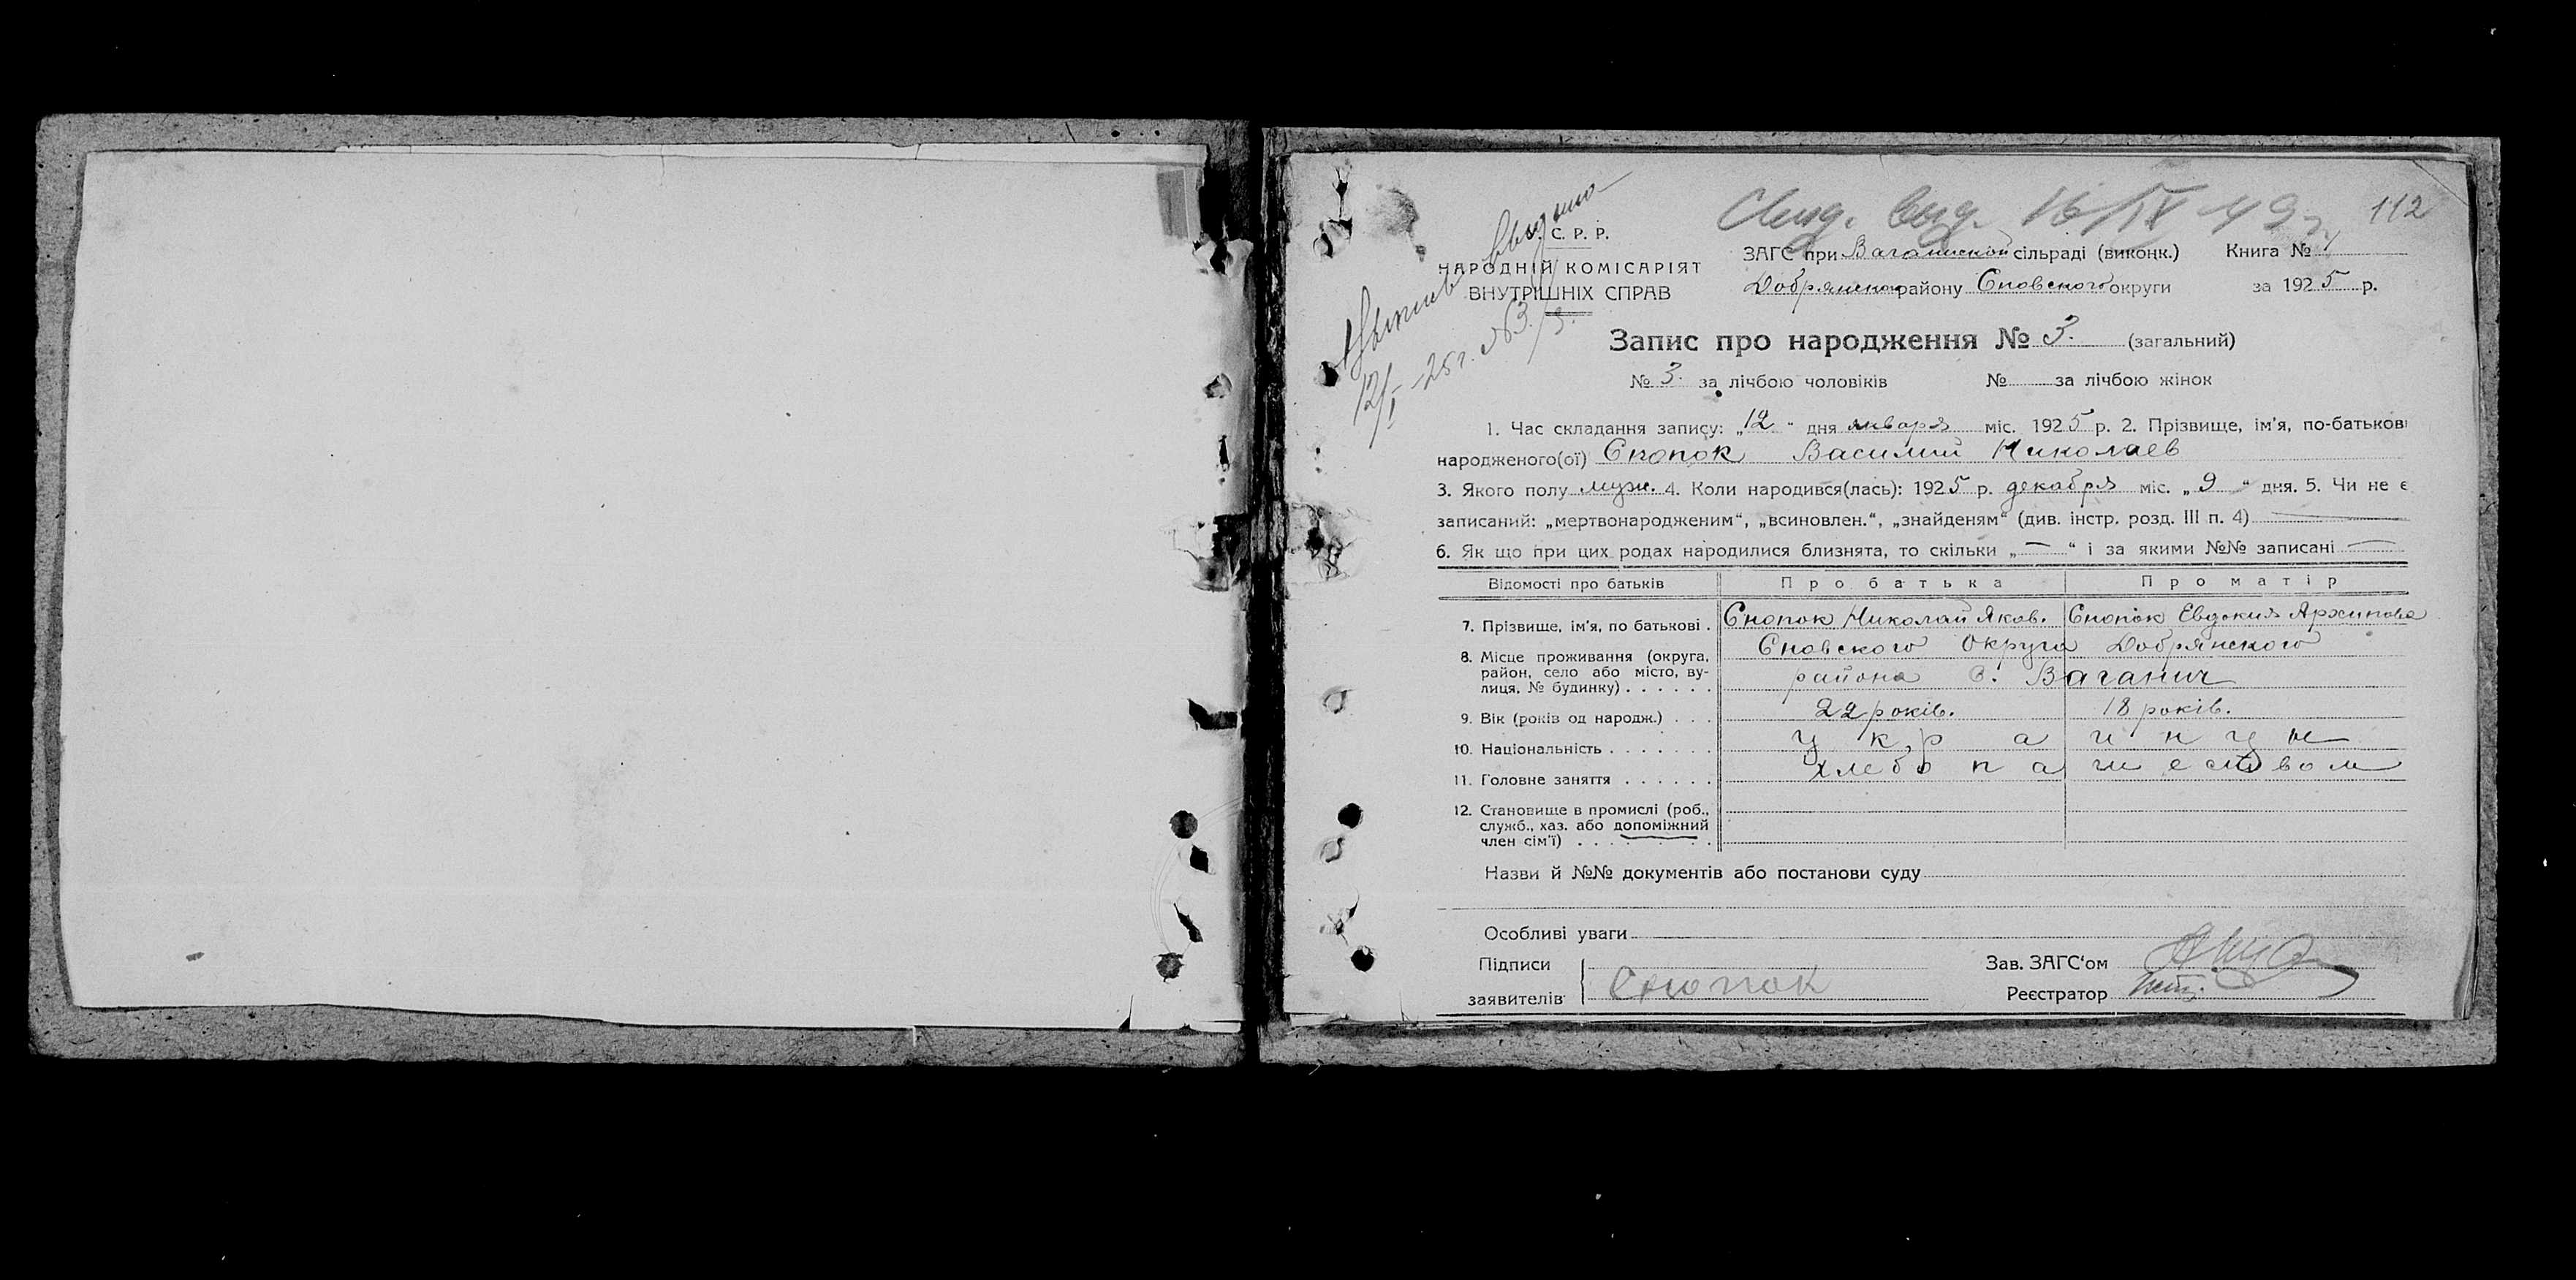 112
С. Р. Р.
НАРОДНІЙ КОМІСАРІЯТ
ВНУТРІШНІХ СПРАВ
12/I-25 г. №3
ЗАГС при Ваганиской сільраді (виконк.) Книга № 1
Добрянского району Сновского округи за 1925 р.
Запис про народження № 3. (загальний)
№ 3. за лічбою чоловіків № за лічбою жінок
1. Час складання запису: „12" дня января міс. 1925 р. 2. Прізвище, ім'я, по-батькові
народженого(ої) Снопок Василий Николаев
3. Якого полу муж. 4. Коли народився(лась): 1925 р. декабря міс. „9" дня. 5. Чи не є
записаний: „мертвонародженим", „всиновлен.", „знайденям" (див. інстр. розд. III п. 4) —
6. Як що при цих родах народилися близнята, то скільки „—" і за якими №№ записані —
Відомості про батьків Про батька Про матір
7. Прізвище, ім'я, по батькові . Снопок Николай Яков. Снопок Евдокия Архипова
8. Місце проживання (округа, район, село або місто, вулиця, № будинку) . . . . . . Сновского Округа Добрянского
района С. Ваганич
9. Вік (років од народж.) . . . 22 років. 18 років.
10. Національність . . . . . . . украинцы
11. Головне заняття . . . . . . хлебопашеством
12. Становище в промислі (роб.,
служб., хаз. або допоміжний
член сім'ї) . . . . . . . .
Назви й №№ документів або постанови суду
Особливі уваги
Підписи
заявителів Снопок
Зав. ЗАГС'ом
Реєстратор